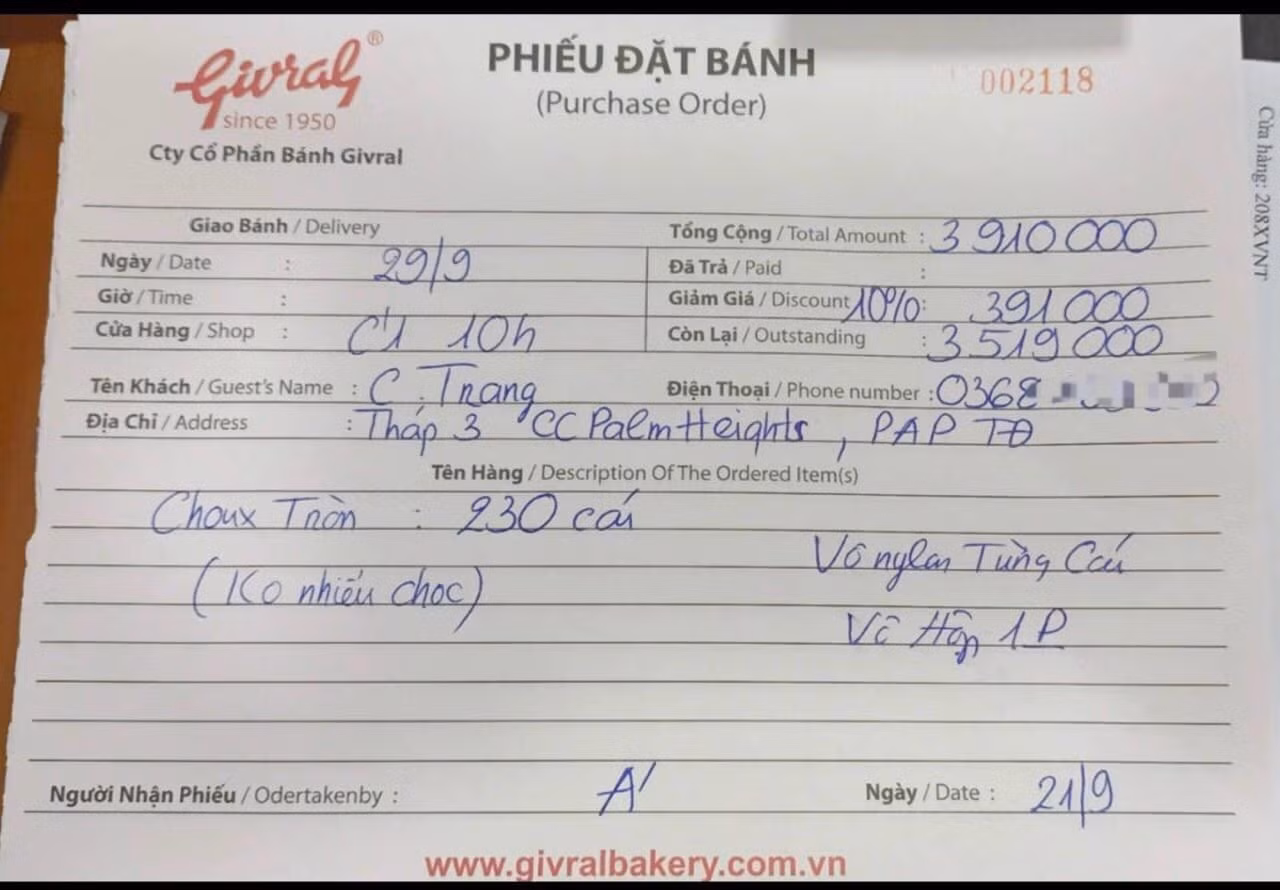 Givral ®
since 1950
Cty Cổ Phần Bánh Givral
PHIẾU ĐẶT BÁNH
(Purchase Order)
002118
Cửa hàng: 208XVNT
Giao Bánh / Delivery
Ngày / Date : 29/9
Giờ / Time :
Cửa Hàng / Shop : C1 10h
Tổng Cộng / Total Amount : 3 910 000
Đã Trả / Paid :
Giảm Giá / Discount 10% : 391 000
Còn Lại / Outstanding : 3 519 000
Tên Khách / Guest's Name : C. Trang
Điện Thoại / Phone number : 0368
Địa Chỉ / Address : Tháp 3 CC Palm Heights, PAP TĐ
Tên Hàng / Description Of The Ordered Item(s)
Choux Tròn : 230 cái
Vô nylon Từng Cái
(Ko nhiều choc)
Vô Hộp 1P
Người Nhận Phiếu / Odertakenby : A'
Ngày / Date : 21/9
www.givralbakery.com.vn